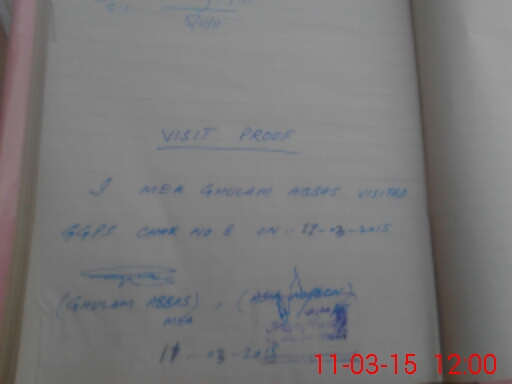 5/11/11
VISIT PROOF
I MEA GHULAM ABBAS VISITED
GGPS CHAK NO. 8 ON -03-2015
(GHULAM ABBAS)
MEA
11-03-2015
11-03-15 12:00